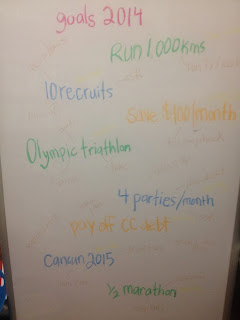 goals 2014
Run 1,000kms
10 recruits
Save $400/month
Olympic triathlon
4 parties/month
pay off CC debt
Cancun 2015
½ marathon